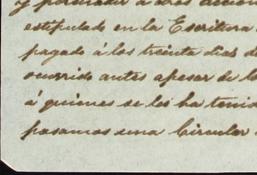 y procurador a otros accion
estipulado en la Escritura
pagado á los treinta dias d
ocurrido antes apesar de lo
á quienes se les ha tenid
pasamos una Circular